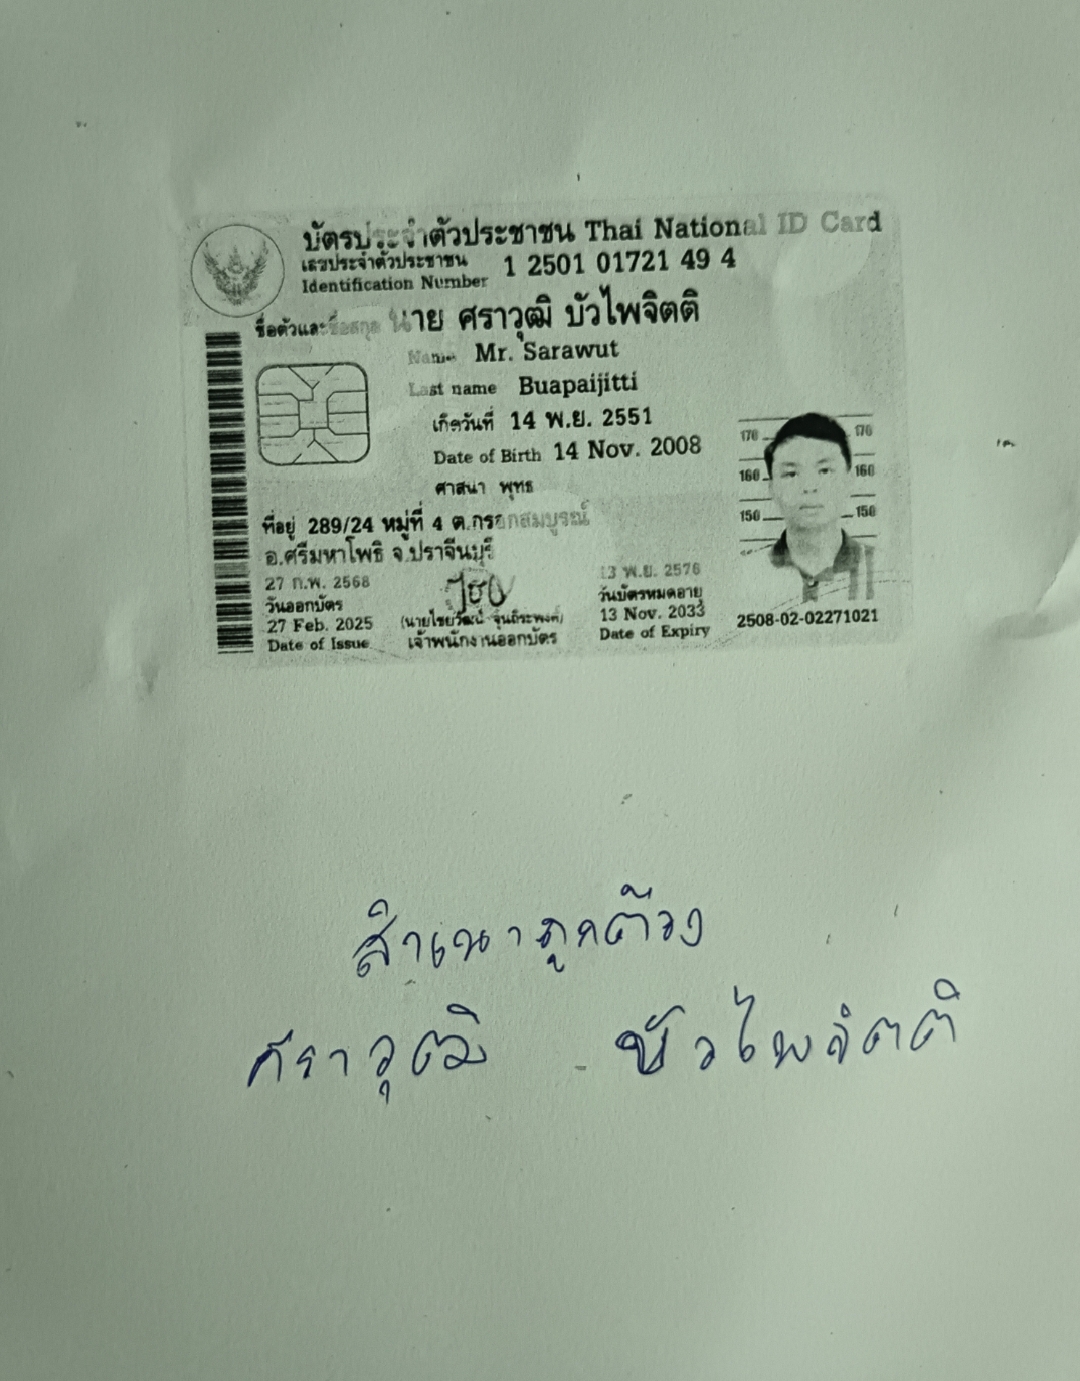 บัตรประจำตัวประชาชน Thai National ID Card
เลขประจำตัวประชาชน 1 2501 01721 49 4
Identification Number
ชื่อตัวและชื่อสกุล นาย ศราวุฒิ บัวไพจิตติ
Name Mr. Sarawut
Last name Buapaijitti
เกิดวันที่ 14 พ.ย. 2551
Date of Birth 14 Nov. 2008
ศาสนา พุทธ
ที่อยู่ 289/24 หมู่ที่ 4 ต.กรอกสมบูรณ์
อ.ศรีมหาโพธิ จ.ปราจีนบุรี
27 ก.พ. 2568
วันออกบัตร
27 Feb. 2025
Date of Issue
เจ้าพนักงานออกบัตร
13 พ.ย. 2576
วันบัตรหมดอายุ
13 Nov. 2033
Date of Expiry
170 170
160 160
150 150
2508-02-02271021
สำเนาถูกต้อง
ศราวุฒิ บัวไพจิตติ